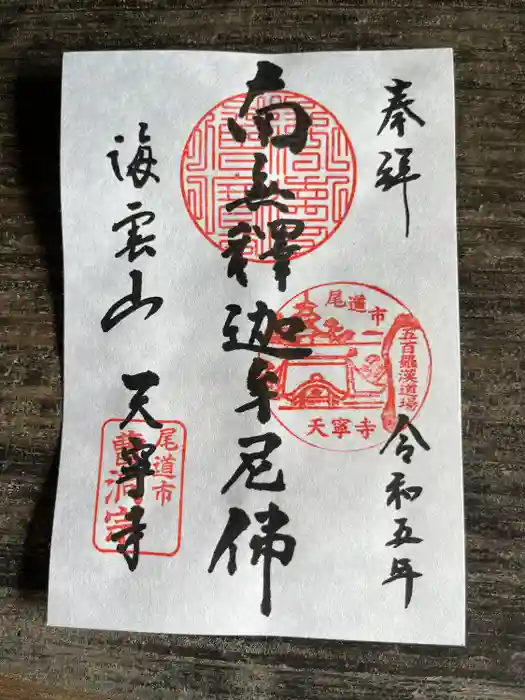 奉拝
令和五年
南無釋迦牟尼佛
海雲山 天寧寺
尾道市
五百羅漢道場
天寧寺
尾道市
曹洞宗